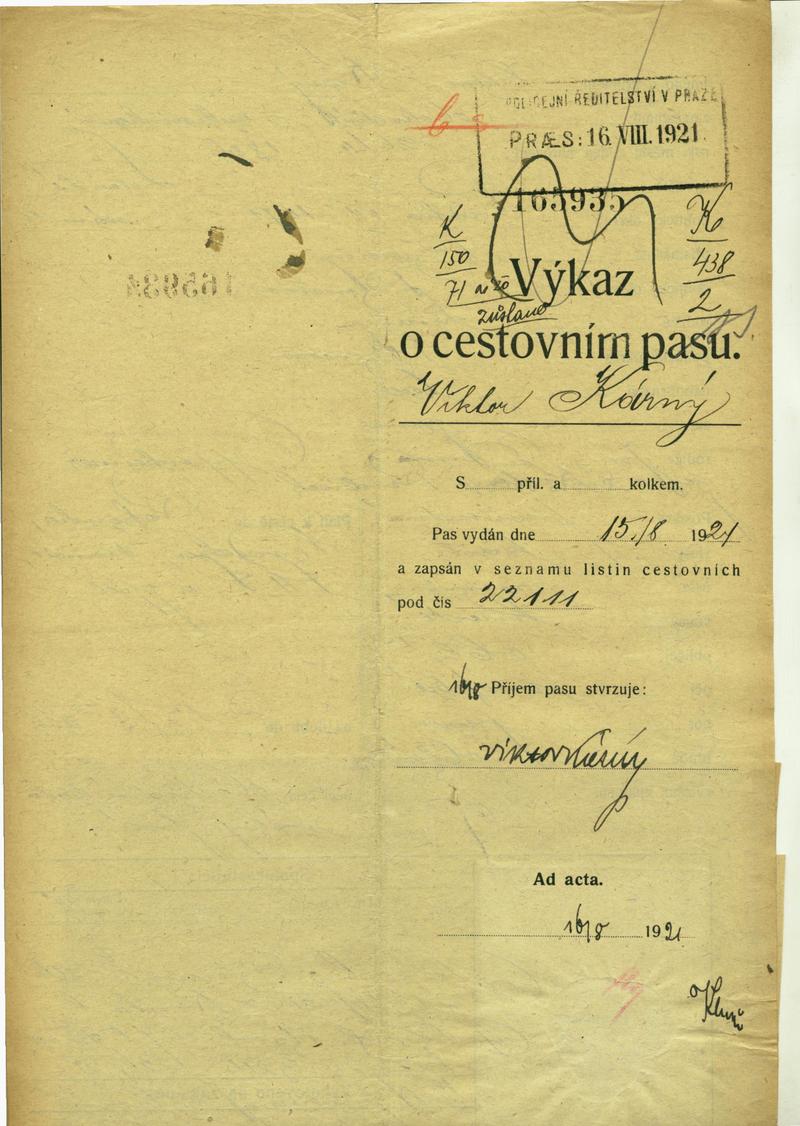 POLICEJNÍ ŘEDITELSTVÍ V PRAZE
PRÆS: 16. VIII. 1921
165935
K
150
71
K
438
2
zůsláno
Výkaz
o cestovním pasu.
Viktor Kárný
S příl. a kolkem.
Pas vydán dne 15./8. 1921
a zapsán v seznamu listin cestovních
pod čís 22111
16/8 Příjem pasu stvrzuje:
Viktor Kárný
Ad acta.
16/8 1921
165934